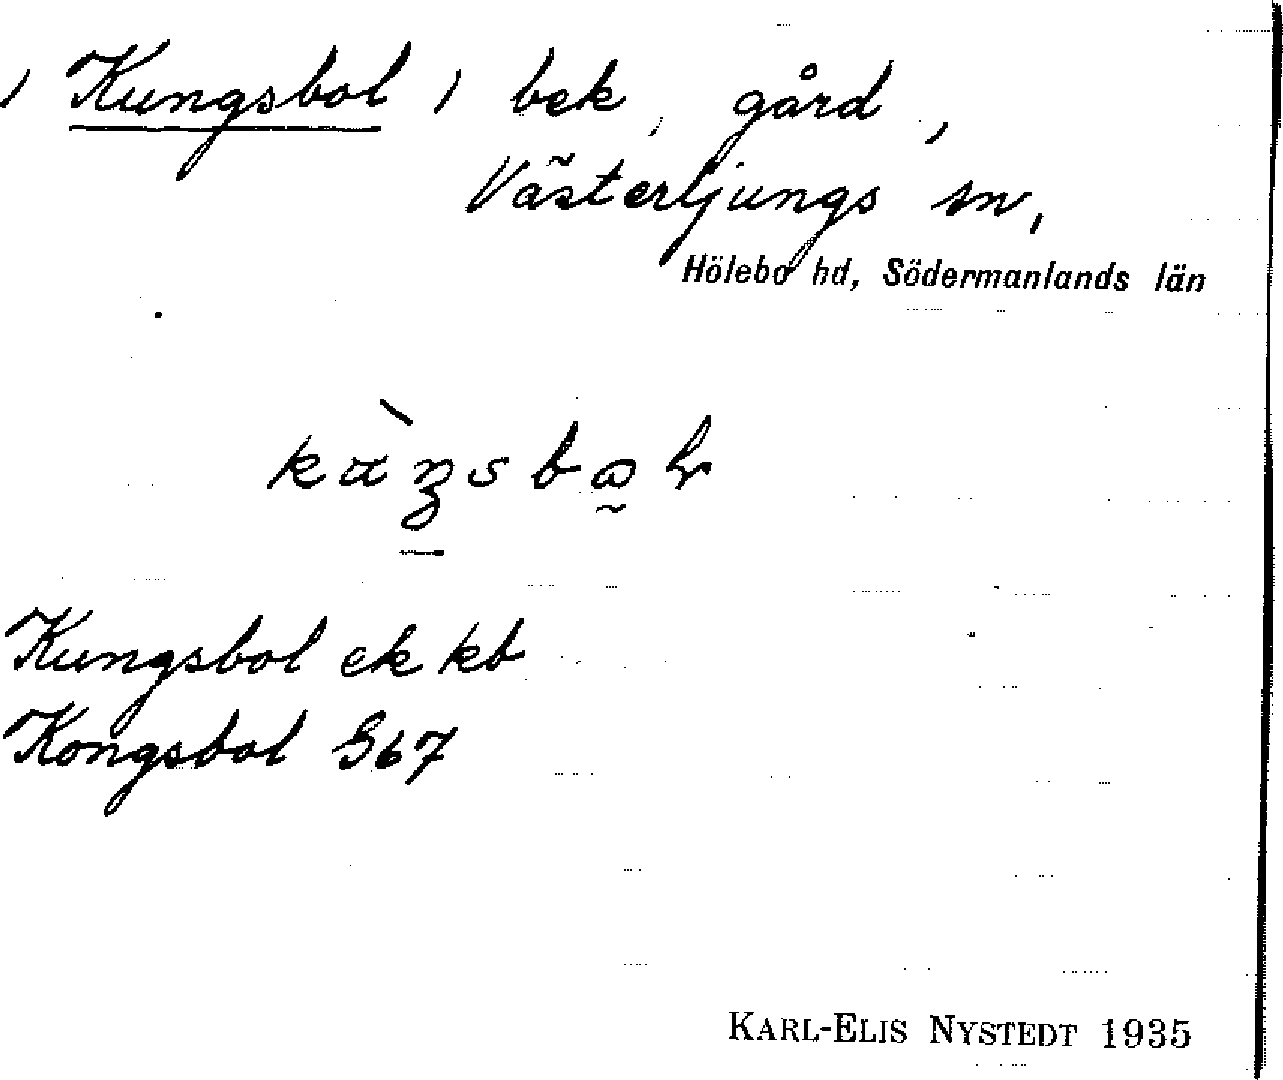 / Kungsbol / bek, gård,
Västerljungs sn,
Hölebo hd, Södermanlands län
Kungsbol ek kb
Kongsbol S67
KARL-ELIS NYSTEDT 1935